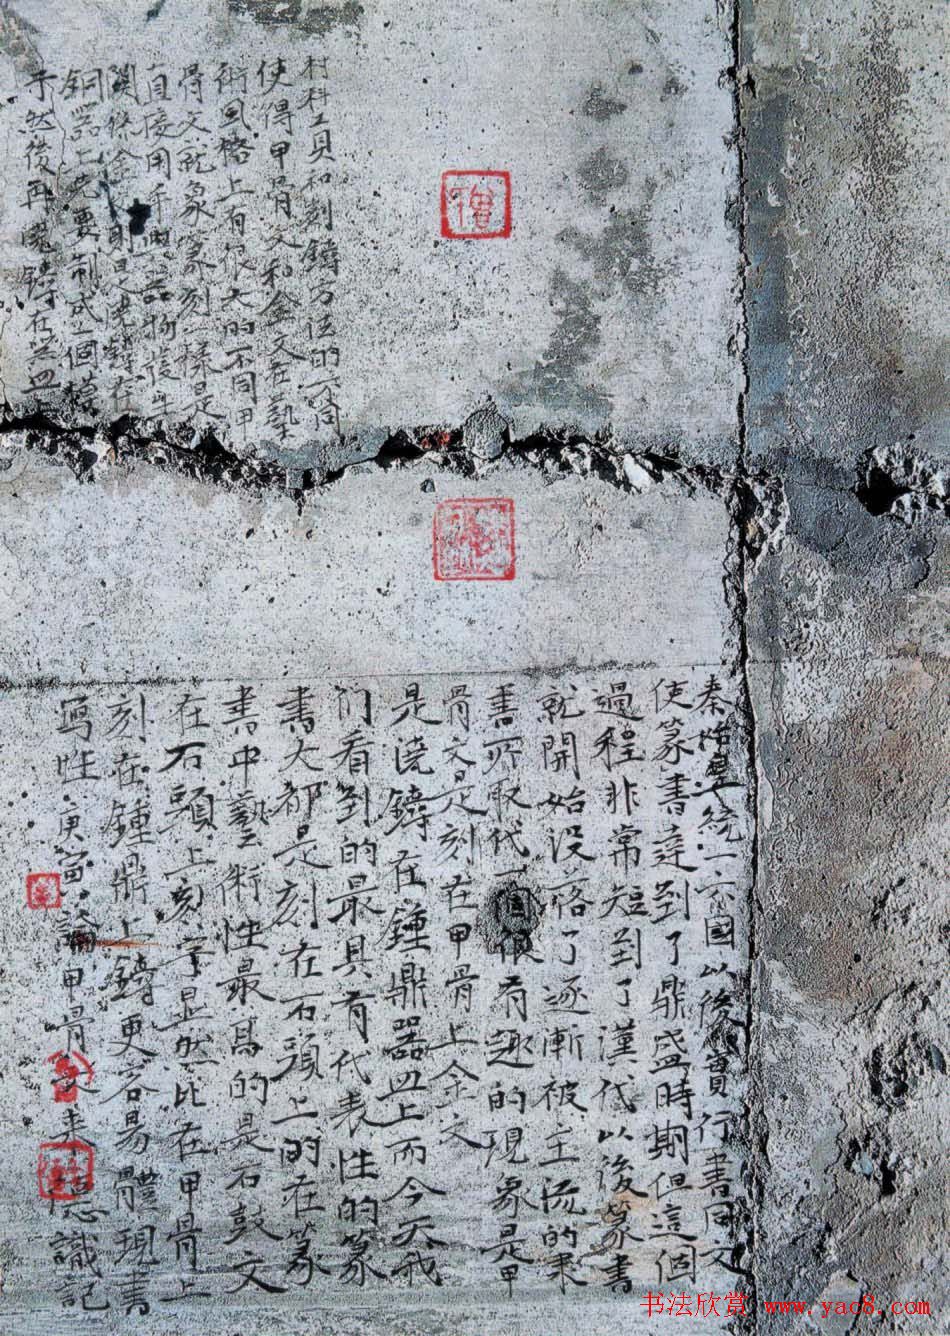 村科工具和刻鑄方法的不同
使得甲骨文和金文在藝
術風格上有很大的不同甲
骨文就象篆刻一樣是
直接用千器物張生
關係金則是澆鑄在
銅器上先要制成一個模
子然後再澆鑄在器皿上
秦始皇統一六國以後實行書同文
使篆書達到了鼎盛時期但這個
過程非常短到了漢代以後篆書
就開始没落了逐漸被主流的隶
書所取代一個很有趣的現象是甲
骨文是刻在甲骨上金文
是浇鑄在鍾鼎器皿上而今天我
们看到的最具有代表性的篆
書大都是刻在石頭上的在篆
書中藝術性最高的是石鼓文
在石頭上刻字显然比在甲骨上
刻在鍾鼎上鑄更容易體現書
寫性庚寅論甲骨文来德識記
书法欣赏 www.yac8.com